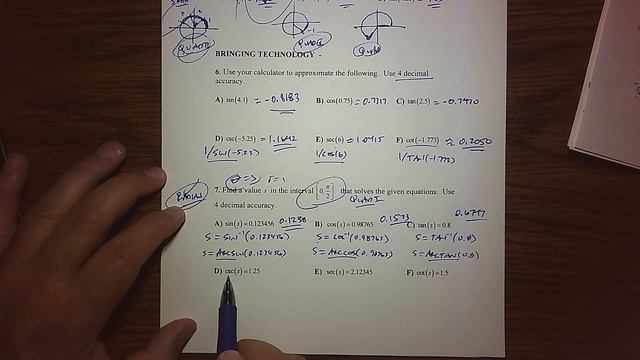 QUAD II QUAD II QUAD
BRINGING TECHNOLOGY -
6. Use your calculator to approximate the following. Use 4 decimal
accuracy.
A) sin(4.1) ≈ -0.8183 B) cos(0.75) = 0.7317 C) tan(2.5) = -0.7470
D) csc(-5.25) = 1.1642 E) sec(6) = 1.0415 F) cot(-1.773) ≈ 0.2050
1/SIN(-5.25) 1/COS(6) 1/TAN(-1.773)
r=1
RADIAN 7. Find a value s in the interval [0, π/2] that solves the given equations. Use
QUAD I
4 decimal accuracy.
A) sin(s) = 0.123456 0.1238 B) cos(s) = 0.98765 0.1573 C) tan(s) = 0.8 0.6747
S = SIN⁻¹(0.123456) S = COS⁻¹(0.98765) S = TAN⁻¹(0.8)
S = ARCSIN(0.123456) S = ARCCOS(0.98765) S = ARCTAN(0.8)
D) csc(s) = 1.25 E) sec(s) = 2.12345 F) cot(s) = 1.5